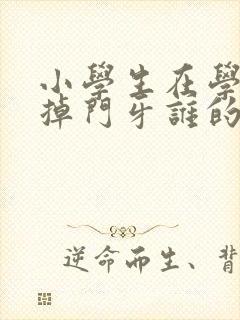 小學生在學
掉門牙誰的
逆命而生、背